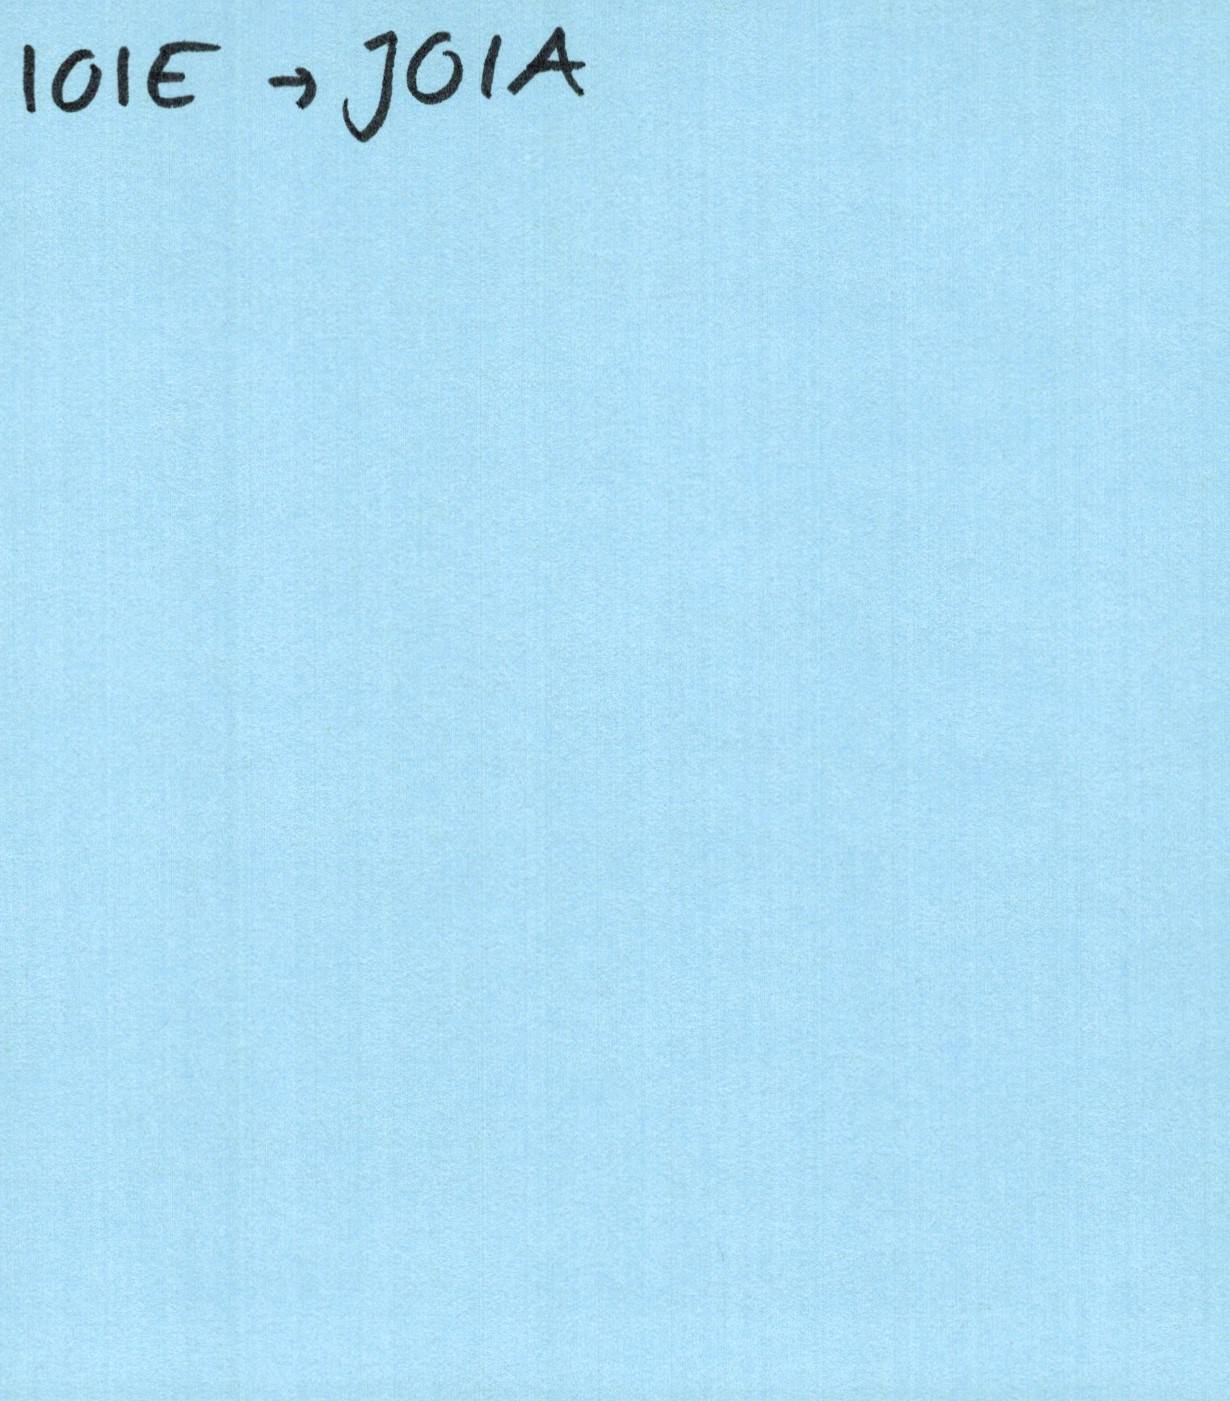 IOIE → JOIA